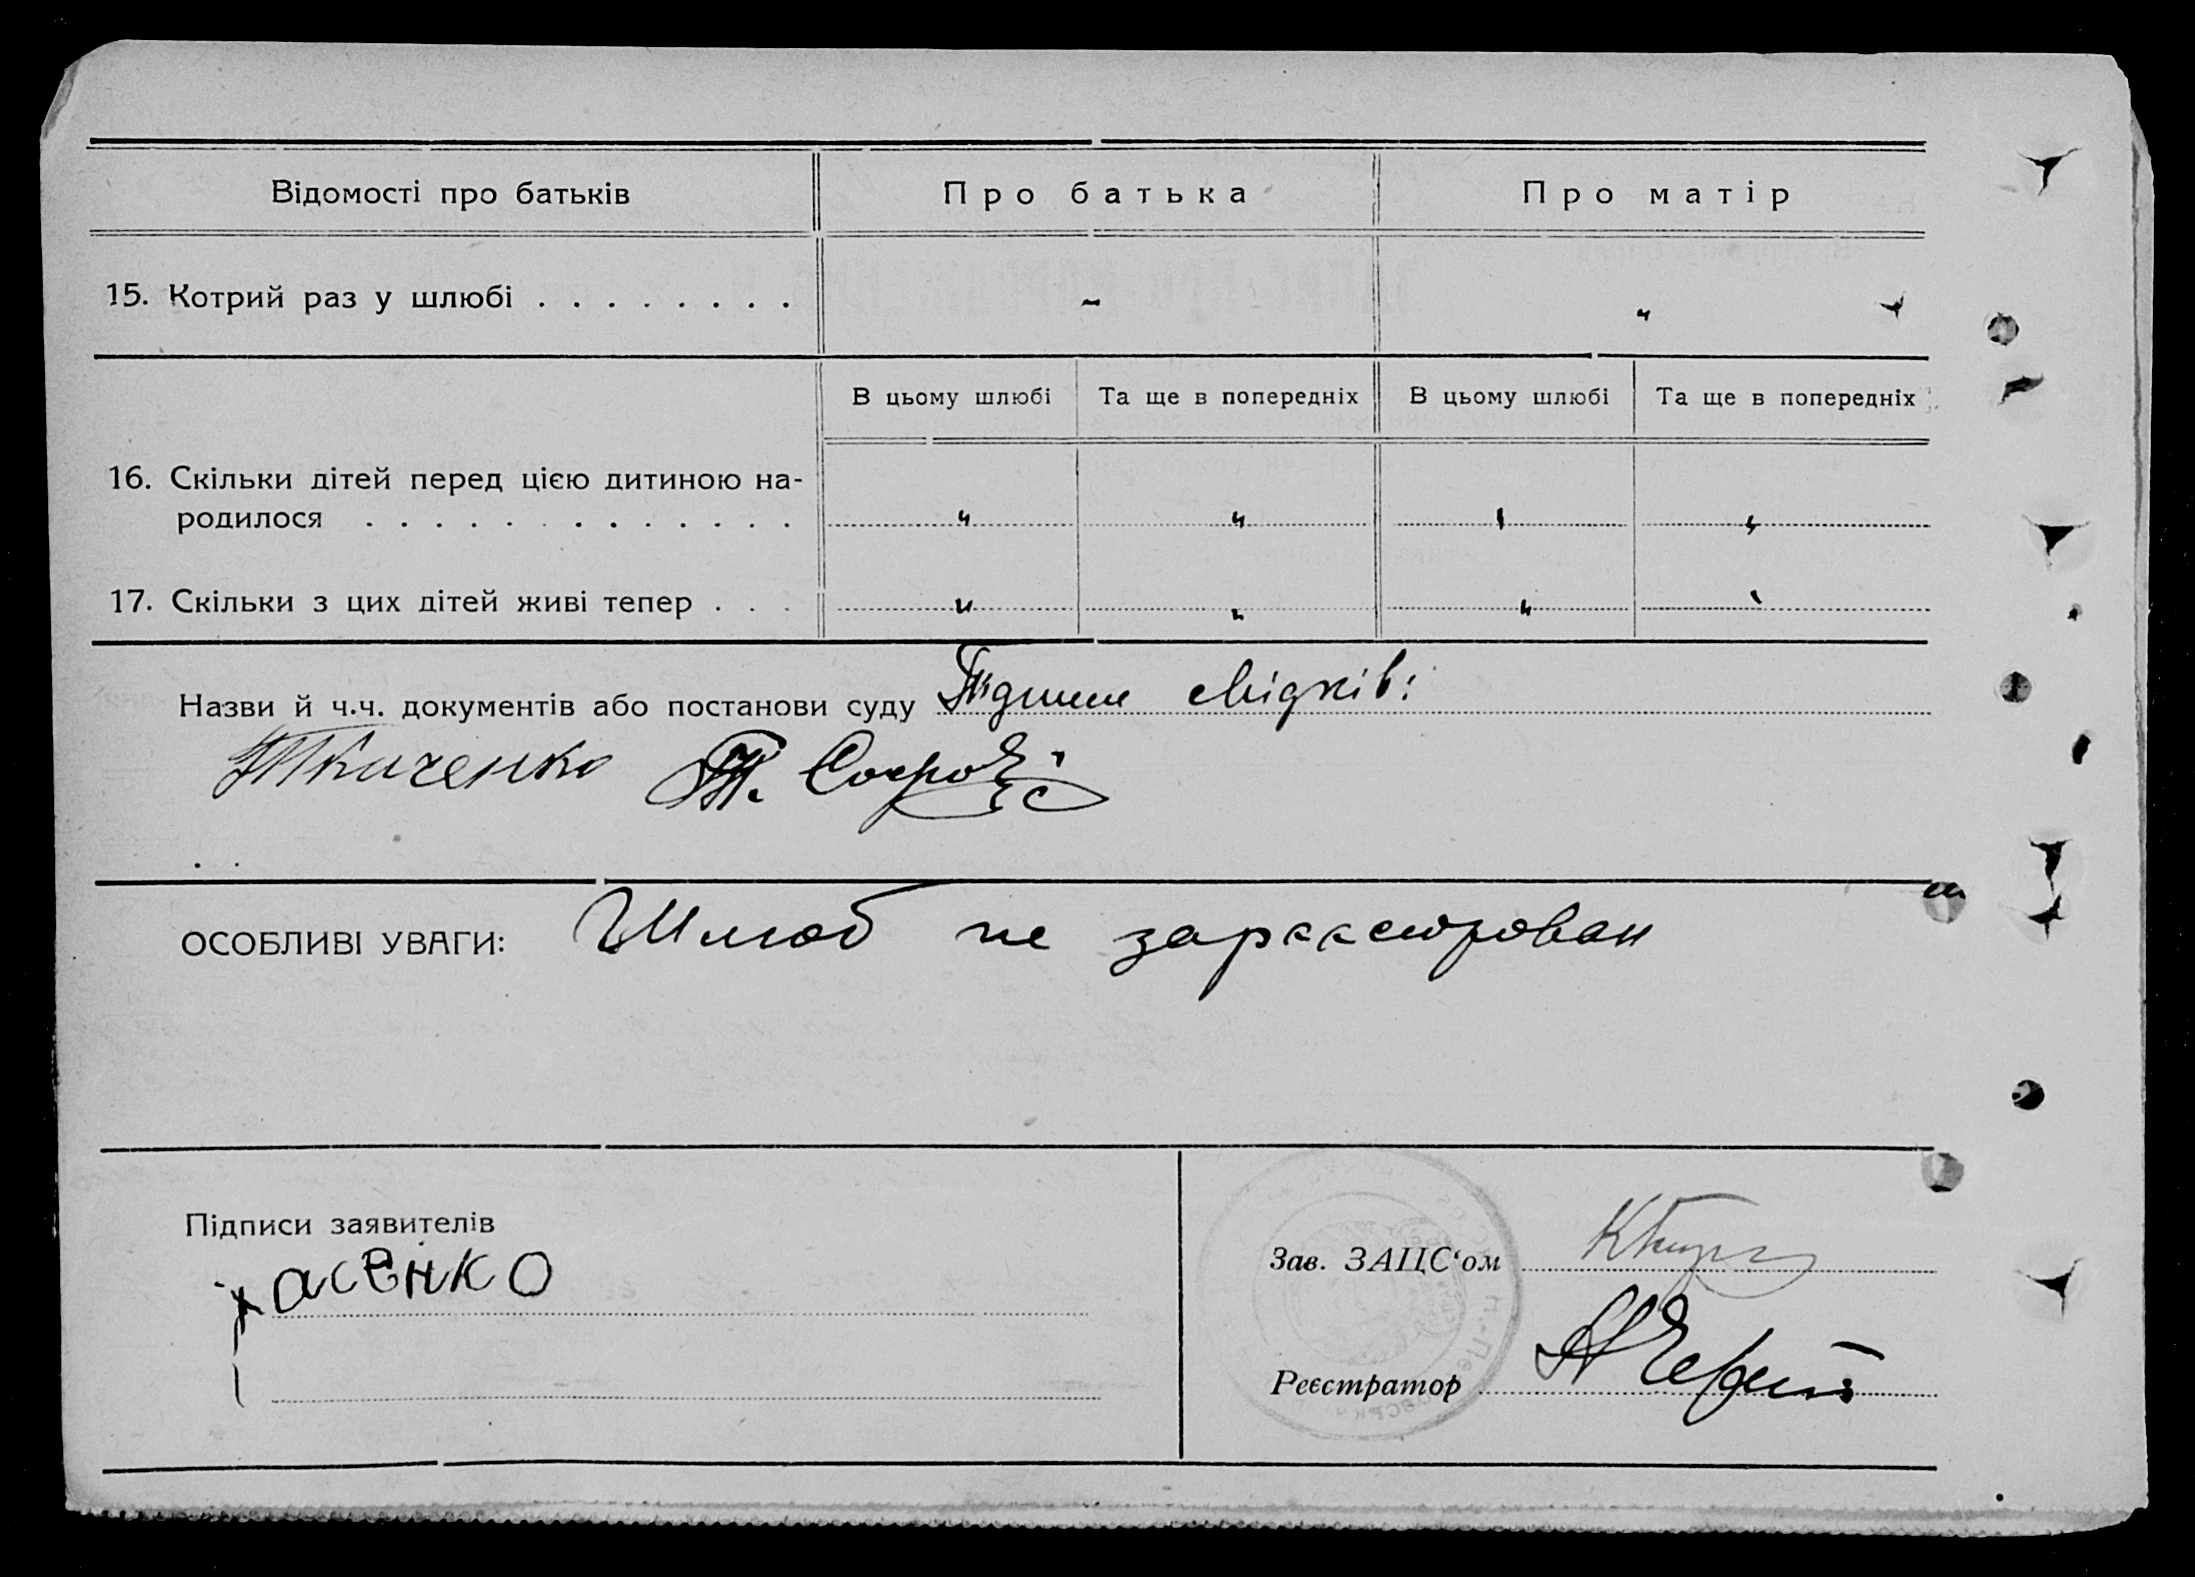 Відомості про батьків Про батька Про матір
15. Котрий раз у шлюбі . . . . . . . . - „
В цьому шлюбі Та ще в попередніх В цьому шлюбі Та ще в попередніх
16. Скільки дітей перед цією дитиною на-
родилося . . . . . . . . . . . . . „ „ „ „
17. Скільки з цих дітей живі тепер . . . „ „ „ „
Назви й ч.ч. документів або постанови суду Підписи свідків:
Ткаченко
ОСОБЛИВІ УВАГИ: Шлюб не зареєстрован
Підписи заявителів
Зав. ЗАЦС‘ом
Реєстратор